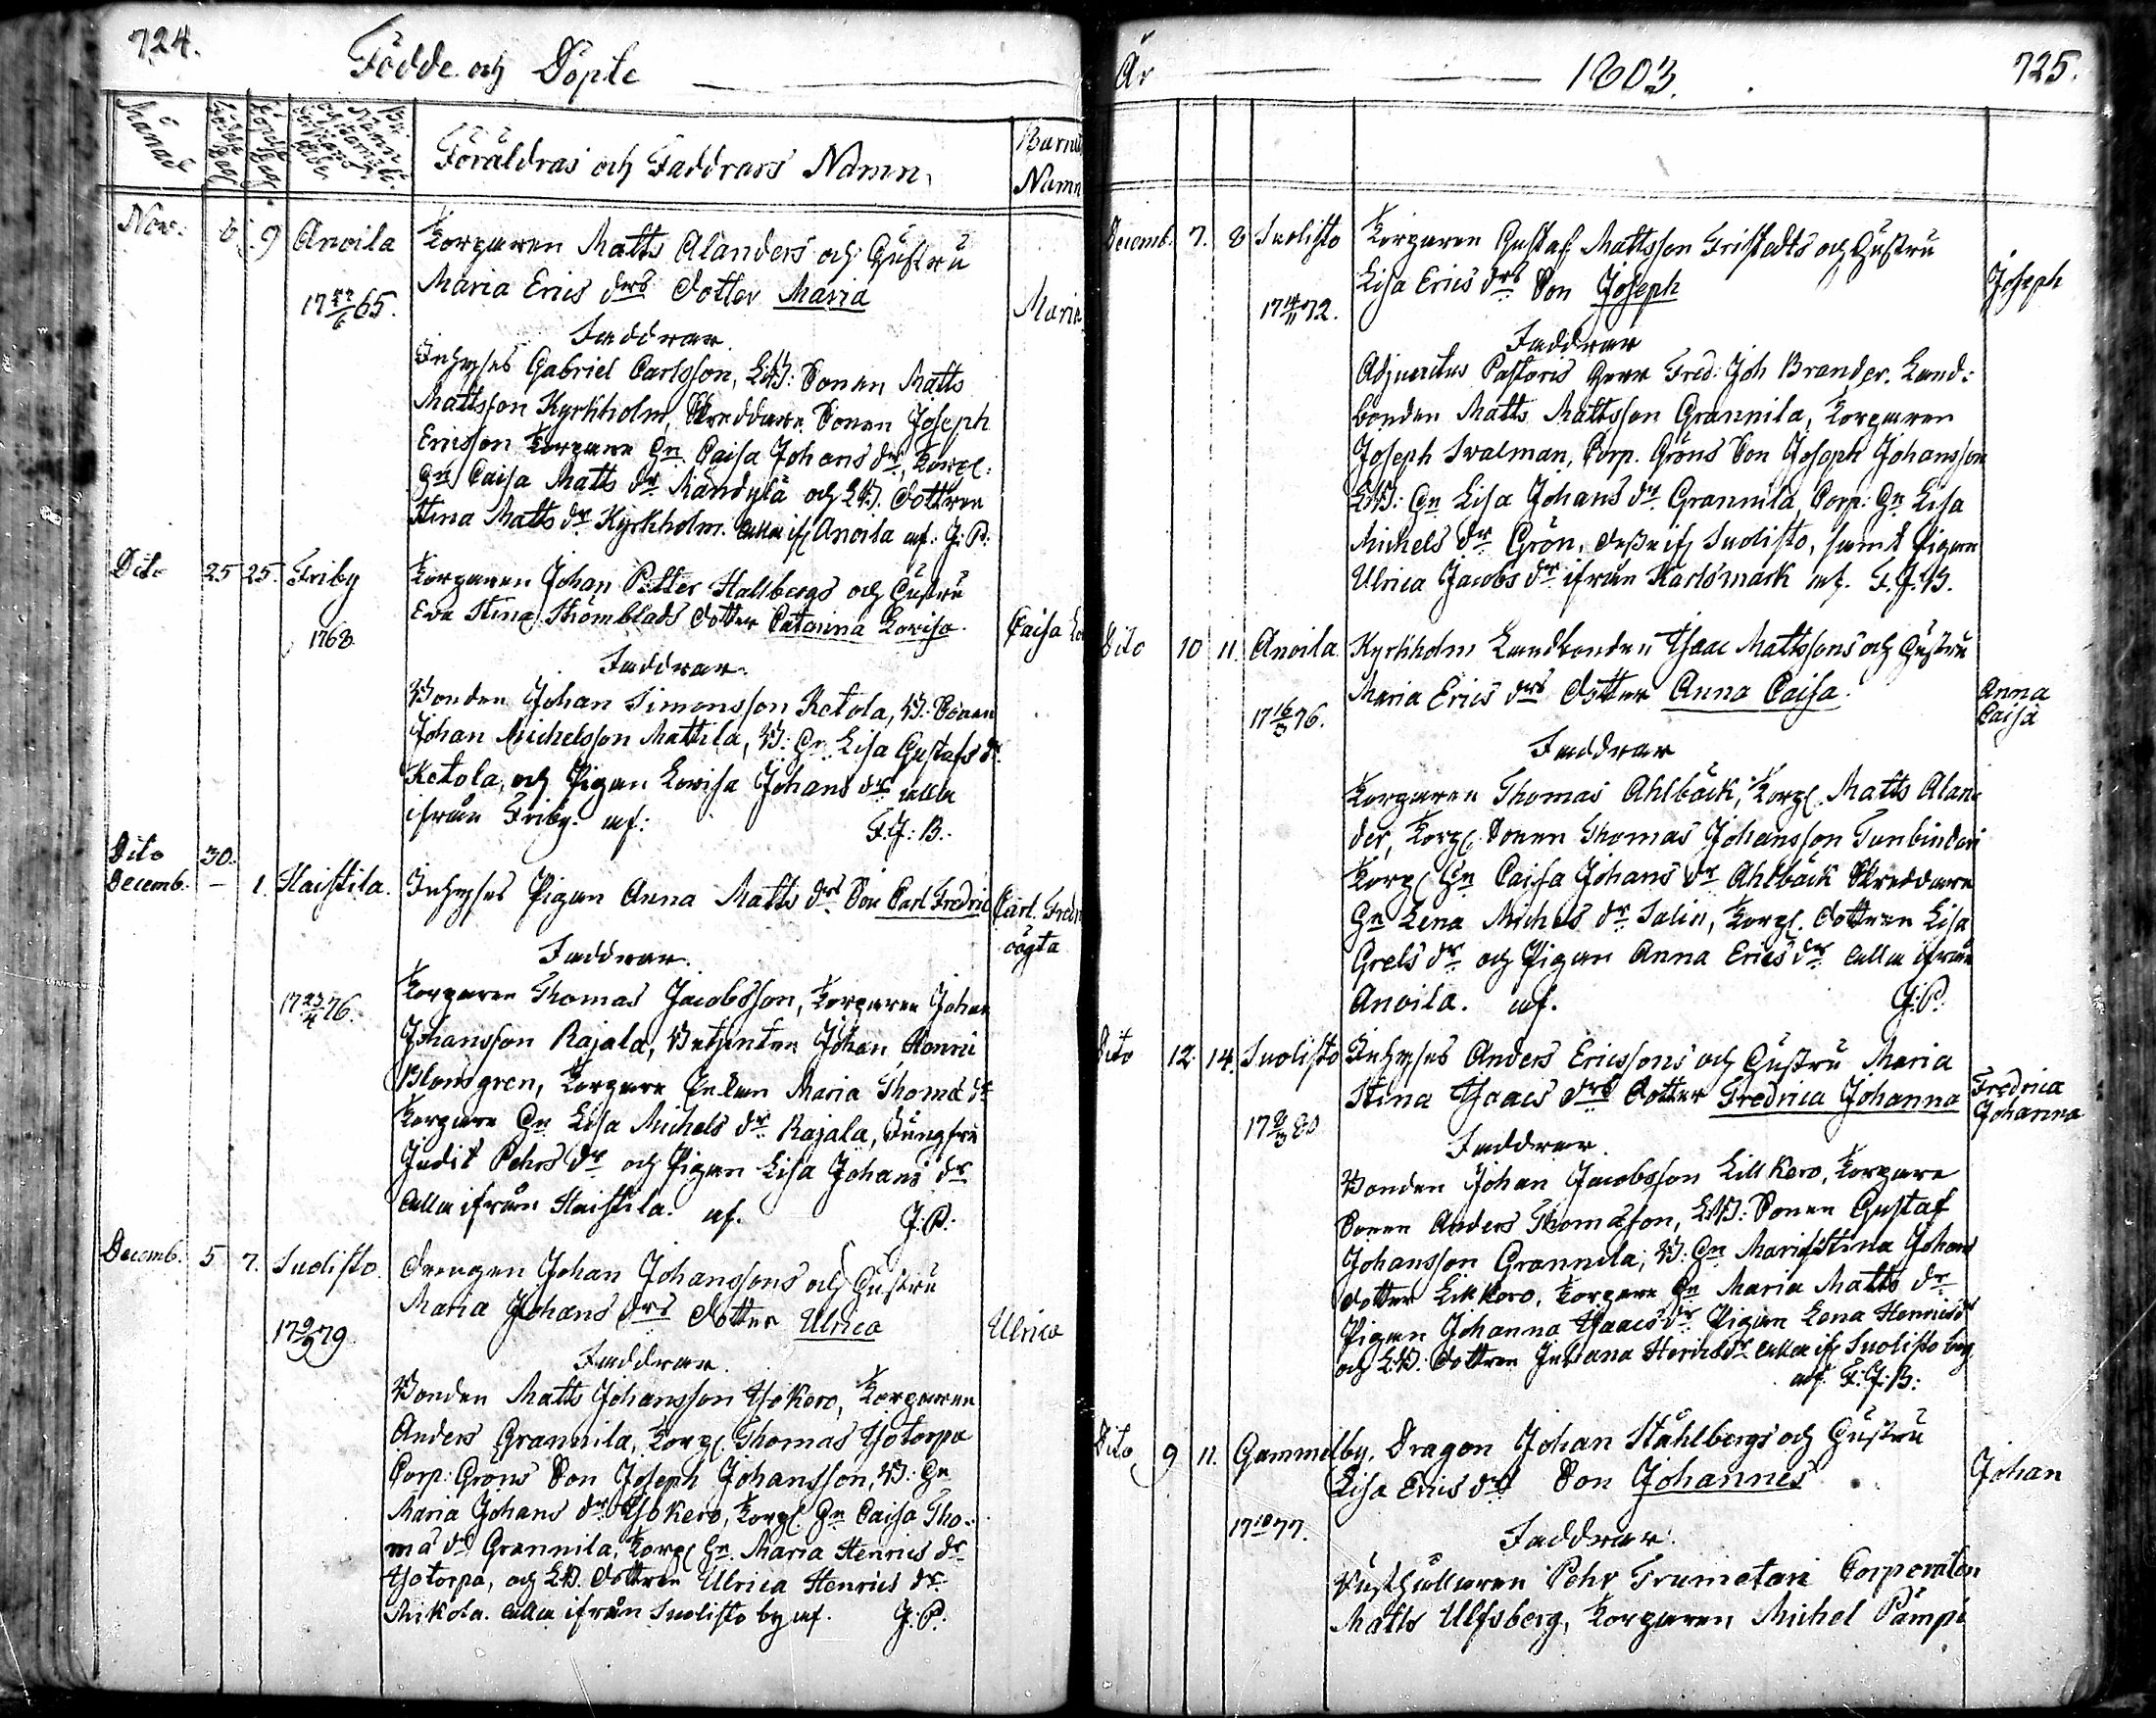 724.
Födde och Döpte
Månad
Födelse Dag
Döpelse Dag
Föräldras och Faddrars Namn.
Barnets Namn
Nov. 8. 9 Anoila Torparen Matts Alanders och Hustru
Maria Erics drs dotter Maria
17 65. Maria
Faddrar.
Inhyses Gabriel Carlsson, LB: Sonen Matts
Mattsson Kyrkholm, Skreddare Sonen Joseph
Ericsson Torpare Hn Caisa Johans dr, Torp:
Hn Caisa Matts dr Mändylä och LB. dottren
Stina Matts dr Kyrkholm. alla if. Anoila af. J. P.
Dito 25 25. Friby Torparen Johan Petter Hallbergs och Hustru
Eva Stina Strömblads dotter Catarina Lovisa. Caisa Lo
1768
Faddrar.
Bonden Johan Simonsson Ketola, B: Sonen
Johan Michelsson Mattila, B: Hn Lisa Gustafs dr
Ketola, och Pigan Lovisa Johans dr alla
ifrån Friby. af: F. J: B.
Dito 30.
Decemb. – 1. Haistila. Inhyses Pigan Anna Matts drs Son Carl Fredric Carl Fredr
oägta
Faddrar.
17 23/4 76. Torparen Thomas Jacobsson, Torparen Johan
Johansson Rajala, Betjenten Johan Henric
Blomgren, Torpare Enkan Maria Thomæ dr
Torpare Hn Lisa Michels dr Rajala, Jungfru
Judit Pehrs dr och Pigan Lisa Johans dr
alla ifrån Haistila. af. J: P:
Decemb. 5 7. Suolisto. Drengen Johan Johanssons och Hustru
Maria Johans drs dotter Ulrica Ulrica
17 79
Faddrar.
Bonden Matts Johansson Isokero, Torparen
Anders Grannila, Torp. Thomas Isotorpa
Corp: Gröns Son Joseph Johansson, B: Hn
Maria Johans dr Isokero, Torp. Hn Caisa Tho-
mæ dr Grannila, Torp. Hn. Maria Henrics dr
Isotorpa, och LB. dottren Ulrica Henrics dr
Mikola. alla ifrån Suolisto by af. J. P.
År 1803. 725.
Decemb. 7. 8 Suolisto Torparen Gustaf Mattsson Fristedts och Hustru
Lisa Erics drs Son Joseph Joseph
17 14/11 72.
Faddrar
Adjunctus Pastoris Herr Fred: Joh Brander. Land:
bonden Matts Mattsson Grannila, Torparen
Joseph Svalman, Corp. Gröns Son Joseph Johansson
LB: Hn Lisa Johans dr Grannila, Corp: Hn Lisa
Michels dr Grön, desse if. Suolisto, samt Pigan
Ulrica Jacobs dr ifrån Karlsmark af. F. J. B.
Dito 10 11. Anoila Kyrkholm Landbonden Isaac Mattssons och Hustru
Maria Erics drs dotter Anna Caisa. Anna
Caisa
17 16/3 76.
Faddrar
Torparen Thomas Ahlbäck, Torp. Matts Alan-
der, Torp. Sonen Thomas Johansson Tunbindari
Torp. Hn Caisa Johans dr Ahlbäck Skreddare
Hn Lena Michels dr Salin, Torp. dottren Lisa
Grels dr och Pigan Anna Erics dr alla ifrån
Anoila. af. J: P.
Dito 12 14. Suolisto Inhyses Anders Ericssons och Hustru Maria
Stina Isaacs drs dotter Fredrica Johanna Fredrica
Johanna
17 8/3 80
Faddrar.
Bonden Johan Jacobsson Lillkero, Torpare
Sonen Anders Thomæson, LB: Sonen Gustaf
Johansson Grannila, B: Hn Maria Stina Johans
dotter Lillkero, Torpare Hn Maria Matts dr
Pigan Johanna Isaacs dr Pigan Lena Henrics dr
och LB: dottren Juliana Henrics dr alla if. Suolisto by
af. F: J: B:
Dito 9 11. Gammelby. Dragon Johan Ståhlbergs och Hustru
Lisa Erics drs Son Johannes Johan
17 77.
Faddrar.
Rusthållaren Pehr Trumetari Corporalen
Matts Ulfsberg, Torparen Michel Pämpi